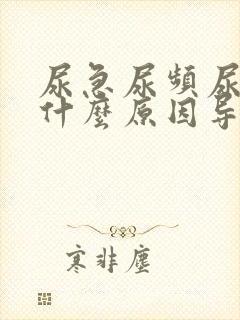 尿急尿頻尿
什麼原因导
寒非塵